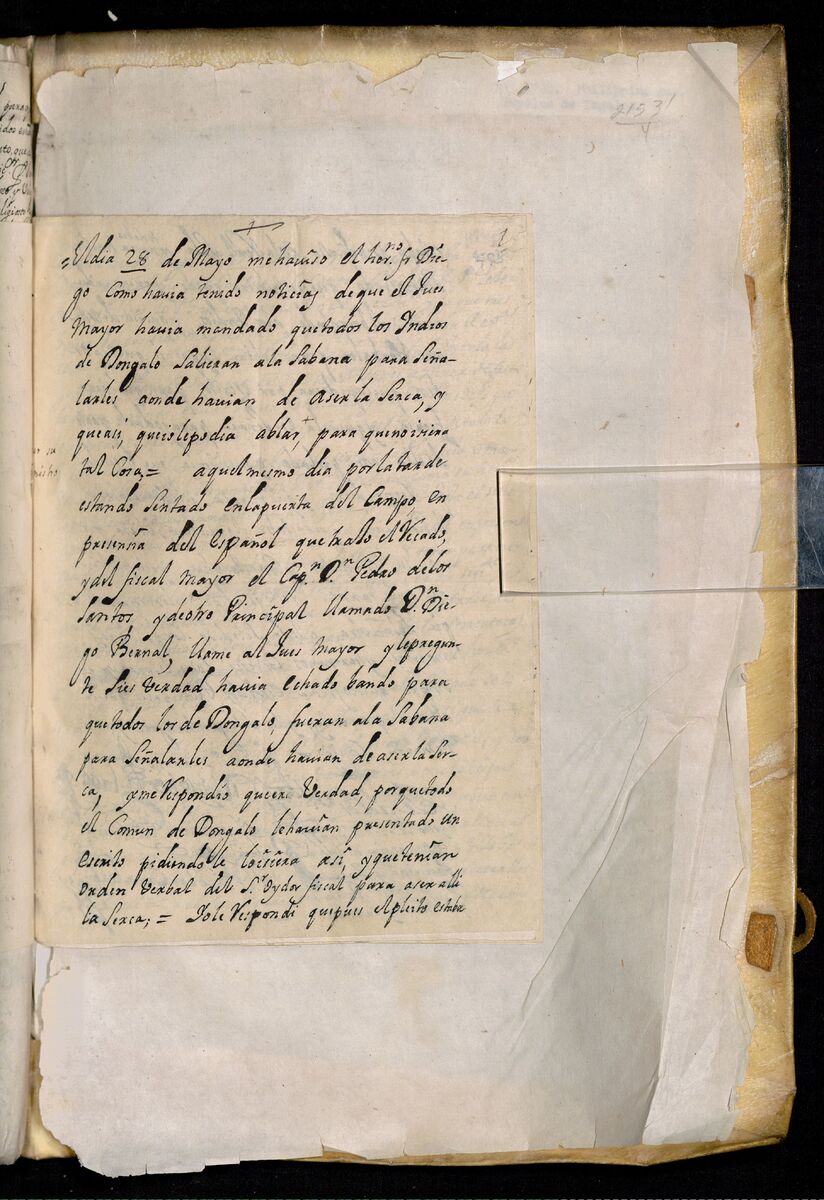 2153
4
1
=El dia 28 de Mayo me haviso el her.no fr Die-
go como havia tenido noticias de que el Jues
Mayor havia mandado que todos los Indios
de Dongalo salieran a la sabana para seña-
larles aonde havian de aser la serca, y
que asi, que io le podia ablar, para que no isiera
tal cosa,= aquel mesmo dia por la tarde
estando sentado en la puerta del Campo, en
presensia del español que trato el
y del fiscal mayor el Cap.n D.n Pedro de los
Santos, y de otro Principal llamado D.n Die-
go Bernal, llame al Jues mayor y le pregun-
te si es verdad havia echado bando para
que todos los de Dongalo, fueran a la sabana
para señalarles aonde havian de aser la ser-
ca, y me respondio que era verdad, porque todo
el comun de Dongalo le havian presentado un
escrito pidiendole lo isiera asi, y que tenian
orden verbal del S.r oydor fiscal para aser alli
la serca; = Io le respondi que pues el pleito estaba